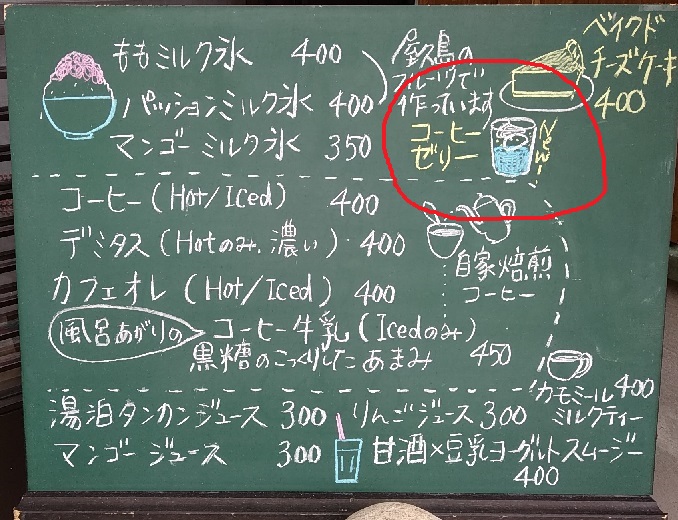 ももミルク氷 400
パッションミルク氷 400
マンゴーミルク氷 350
屋久島の
フルーツで
作っています
ベイクド
チーズケーキ
400
コーヒー
ゼリー
New!
コーヒー(Hot/Iced) 400
デミタス(Hotのみ.濃い) 400
カフェオレ(Hot/Iced) 400
風呂あがりの コーヒー牛乳(Icedのみ)
黒糖のこっくりしたあまみ 450
自家焙煎
コーヒー
カモミール 400
ミルクティー
湯泊タンカンジュース 300 りんごジュース 300
マンゴージュース 300 甘酒×豆乳ヨーグルトスムージー
400